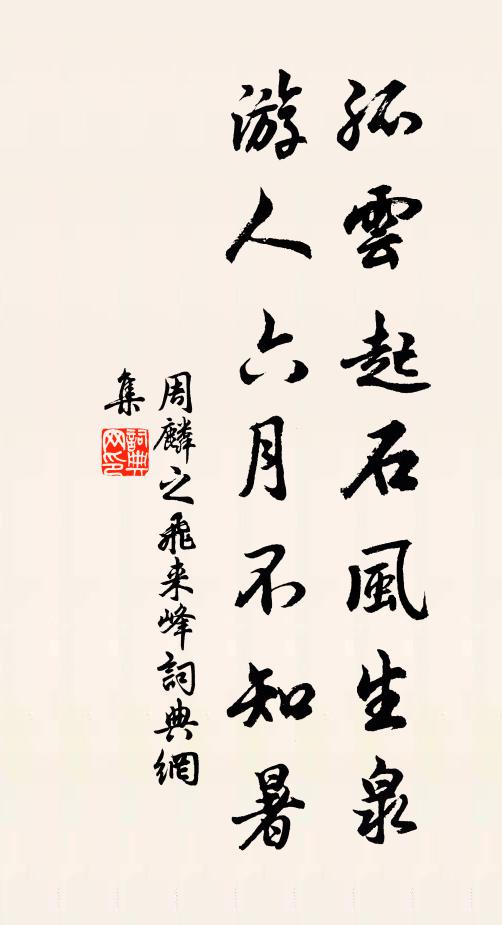 孤雲起石風生泉
游人六月不知暑
周麟之飛来峰詞典網
集
詞典
网印